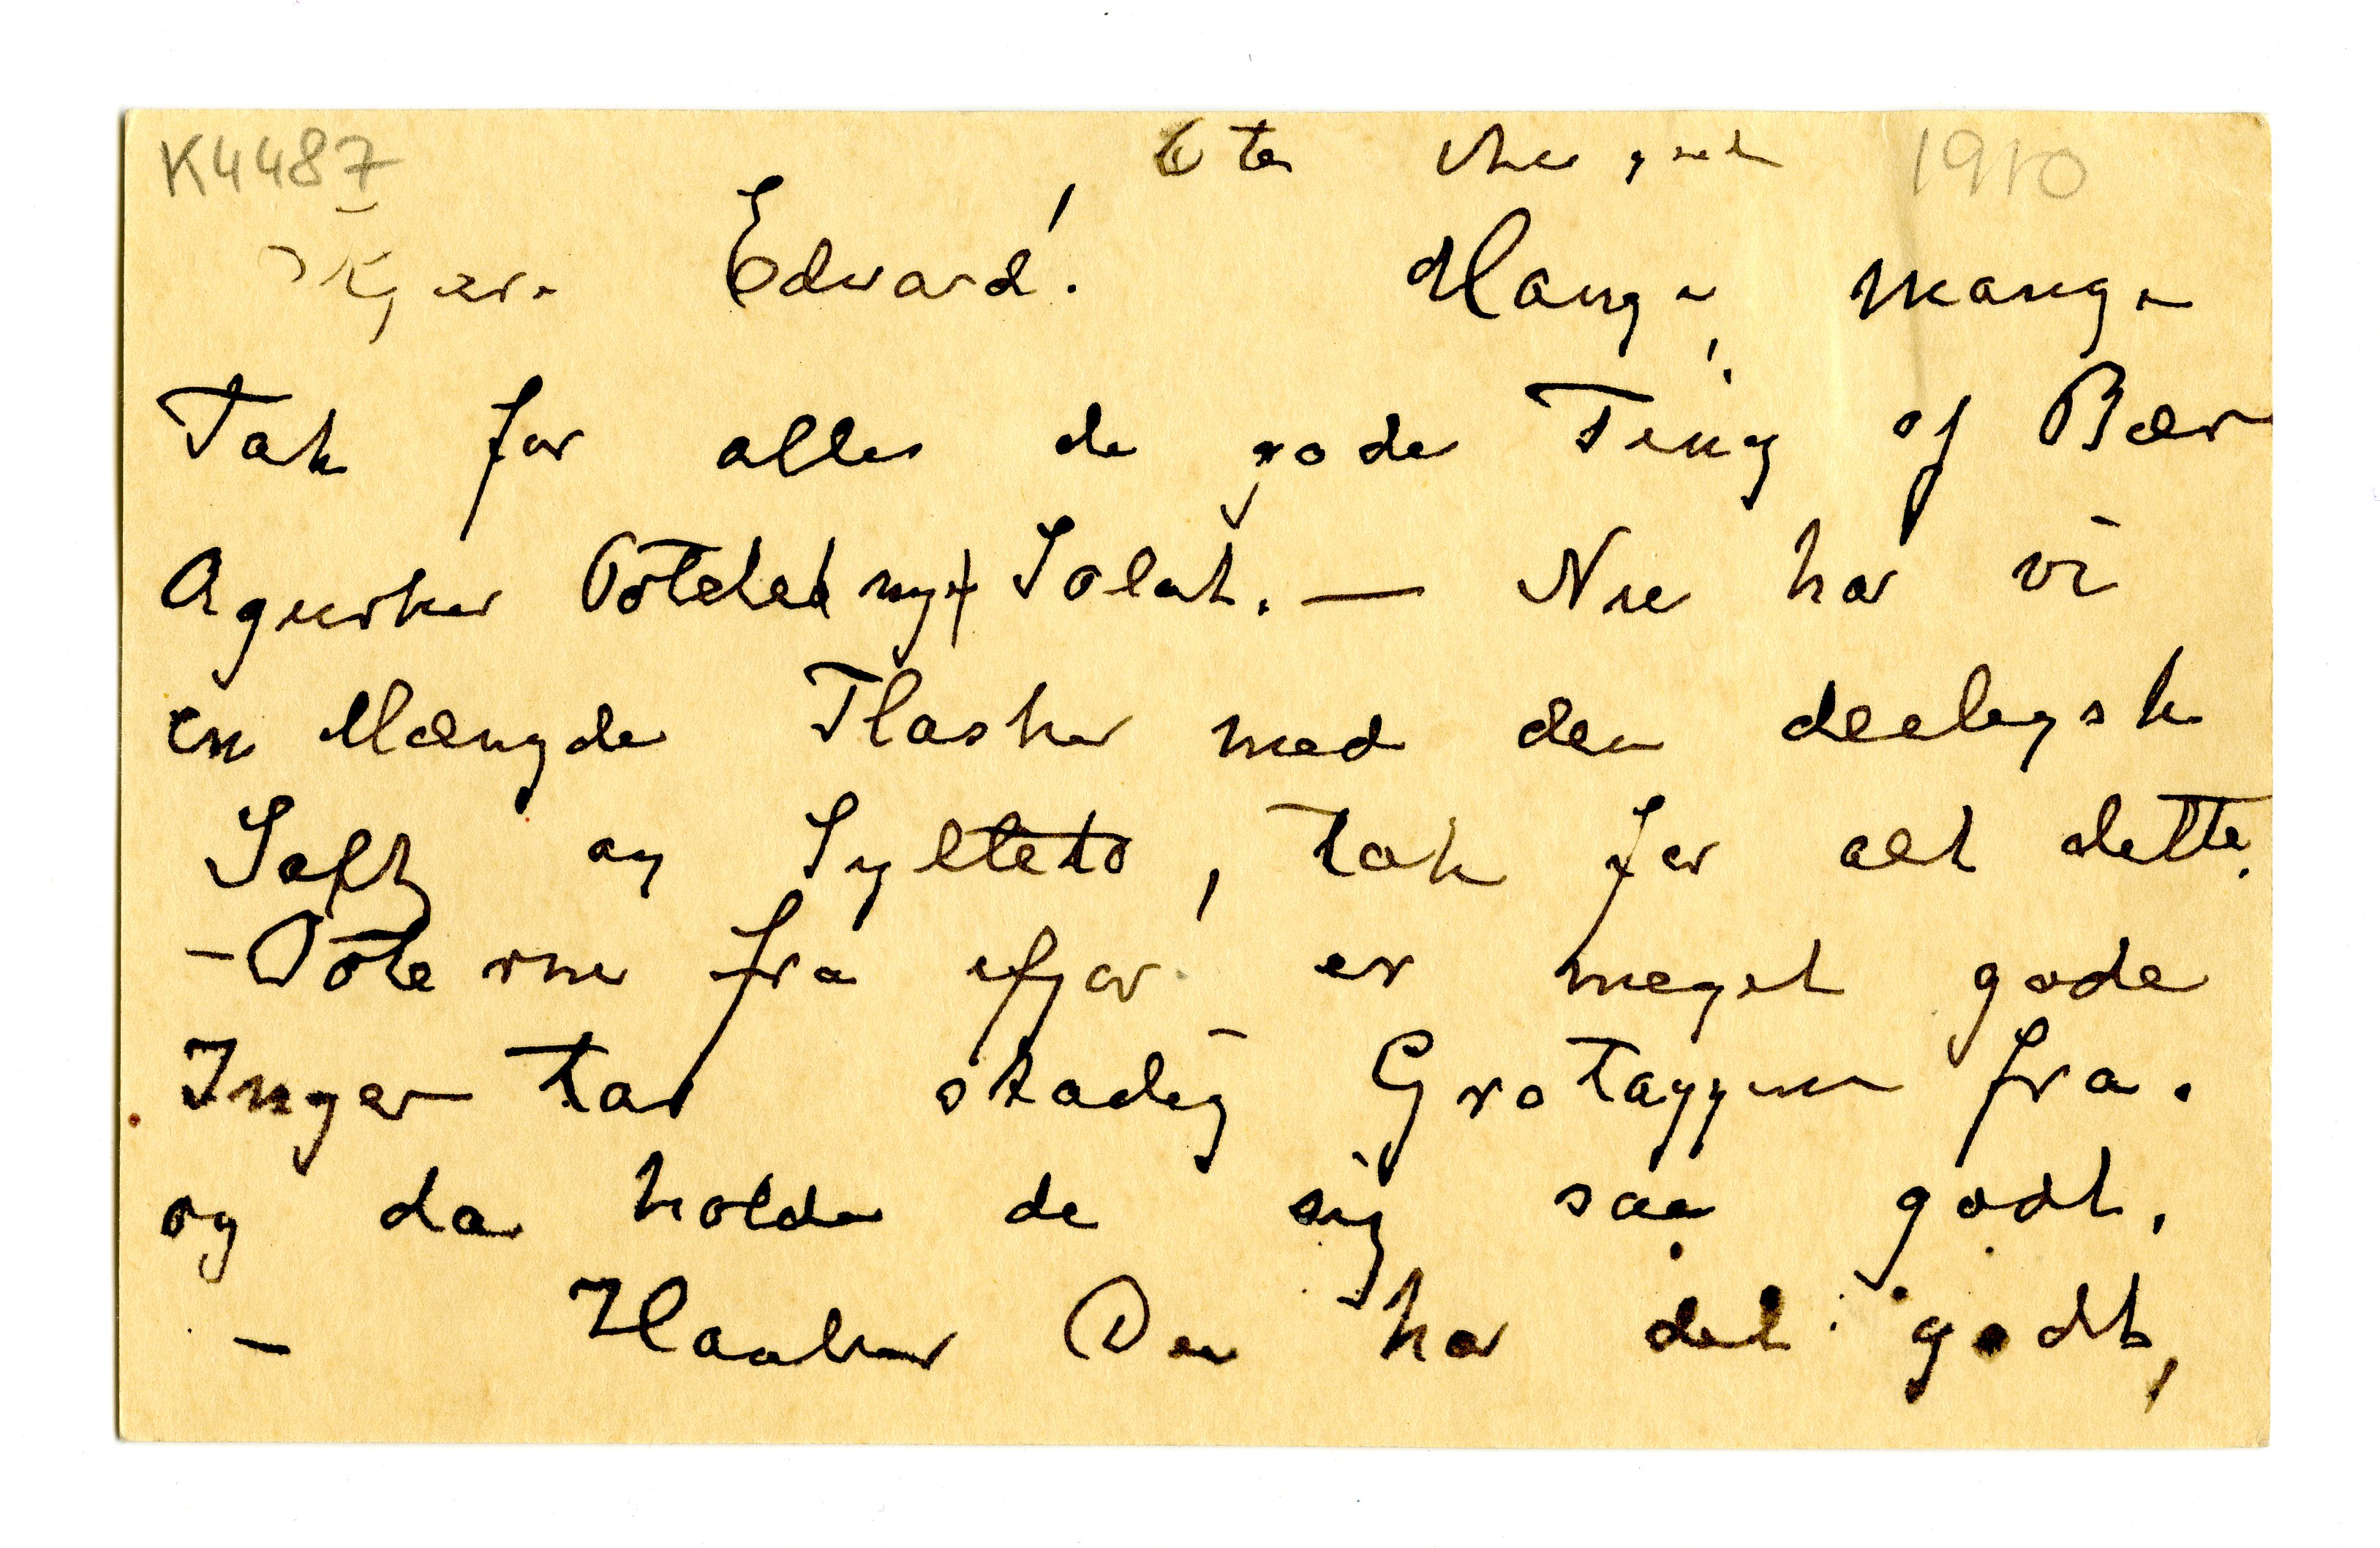 K4487 6te August 1910
Kjære Edvard! Mange, mange
Tak for alle de gode Ting af Bær
Agurker Poteter nyt Salat. — Nu har vi
en Mængde Flasker med den deeligste
Saft og Syltetø, tak for alt dette.
- Poterne fra ifjor er meget gode
Inger tar stadig Grotaggene fra.
og da holder de sig saa godt.
- Haaber Du har det godt,